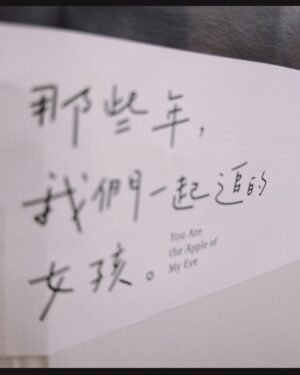 那些年,
我們一起追的
女孩。
You Are
the Apple of
My Eye